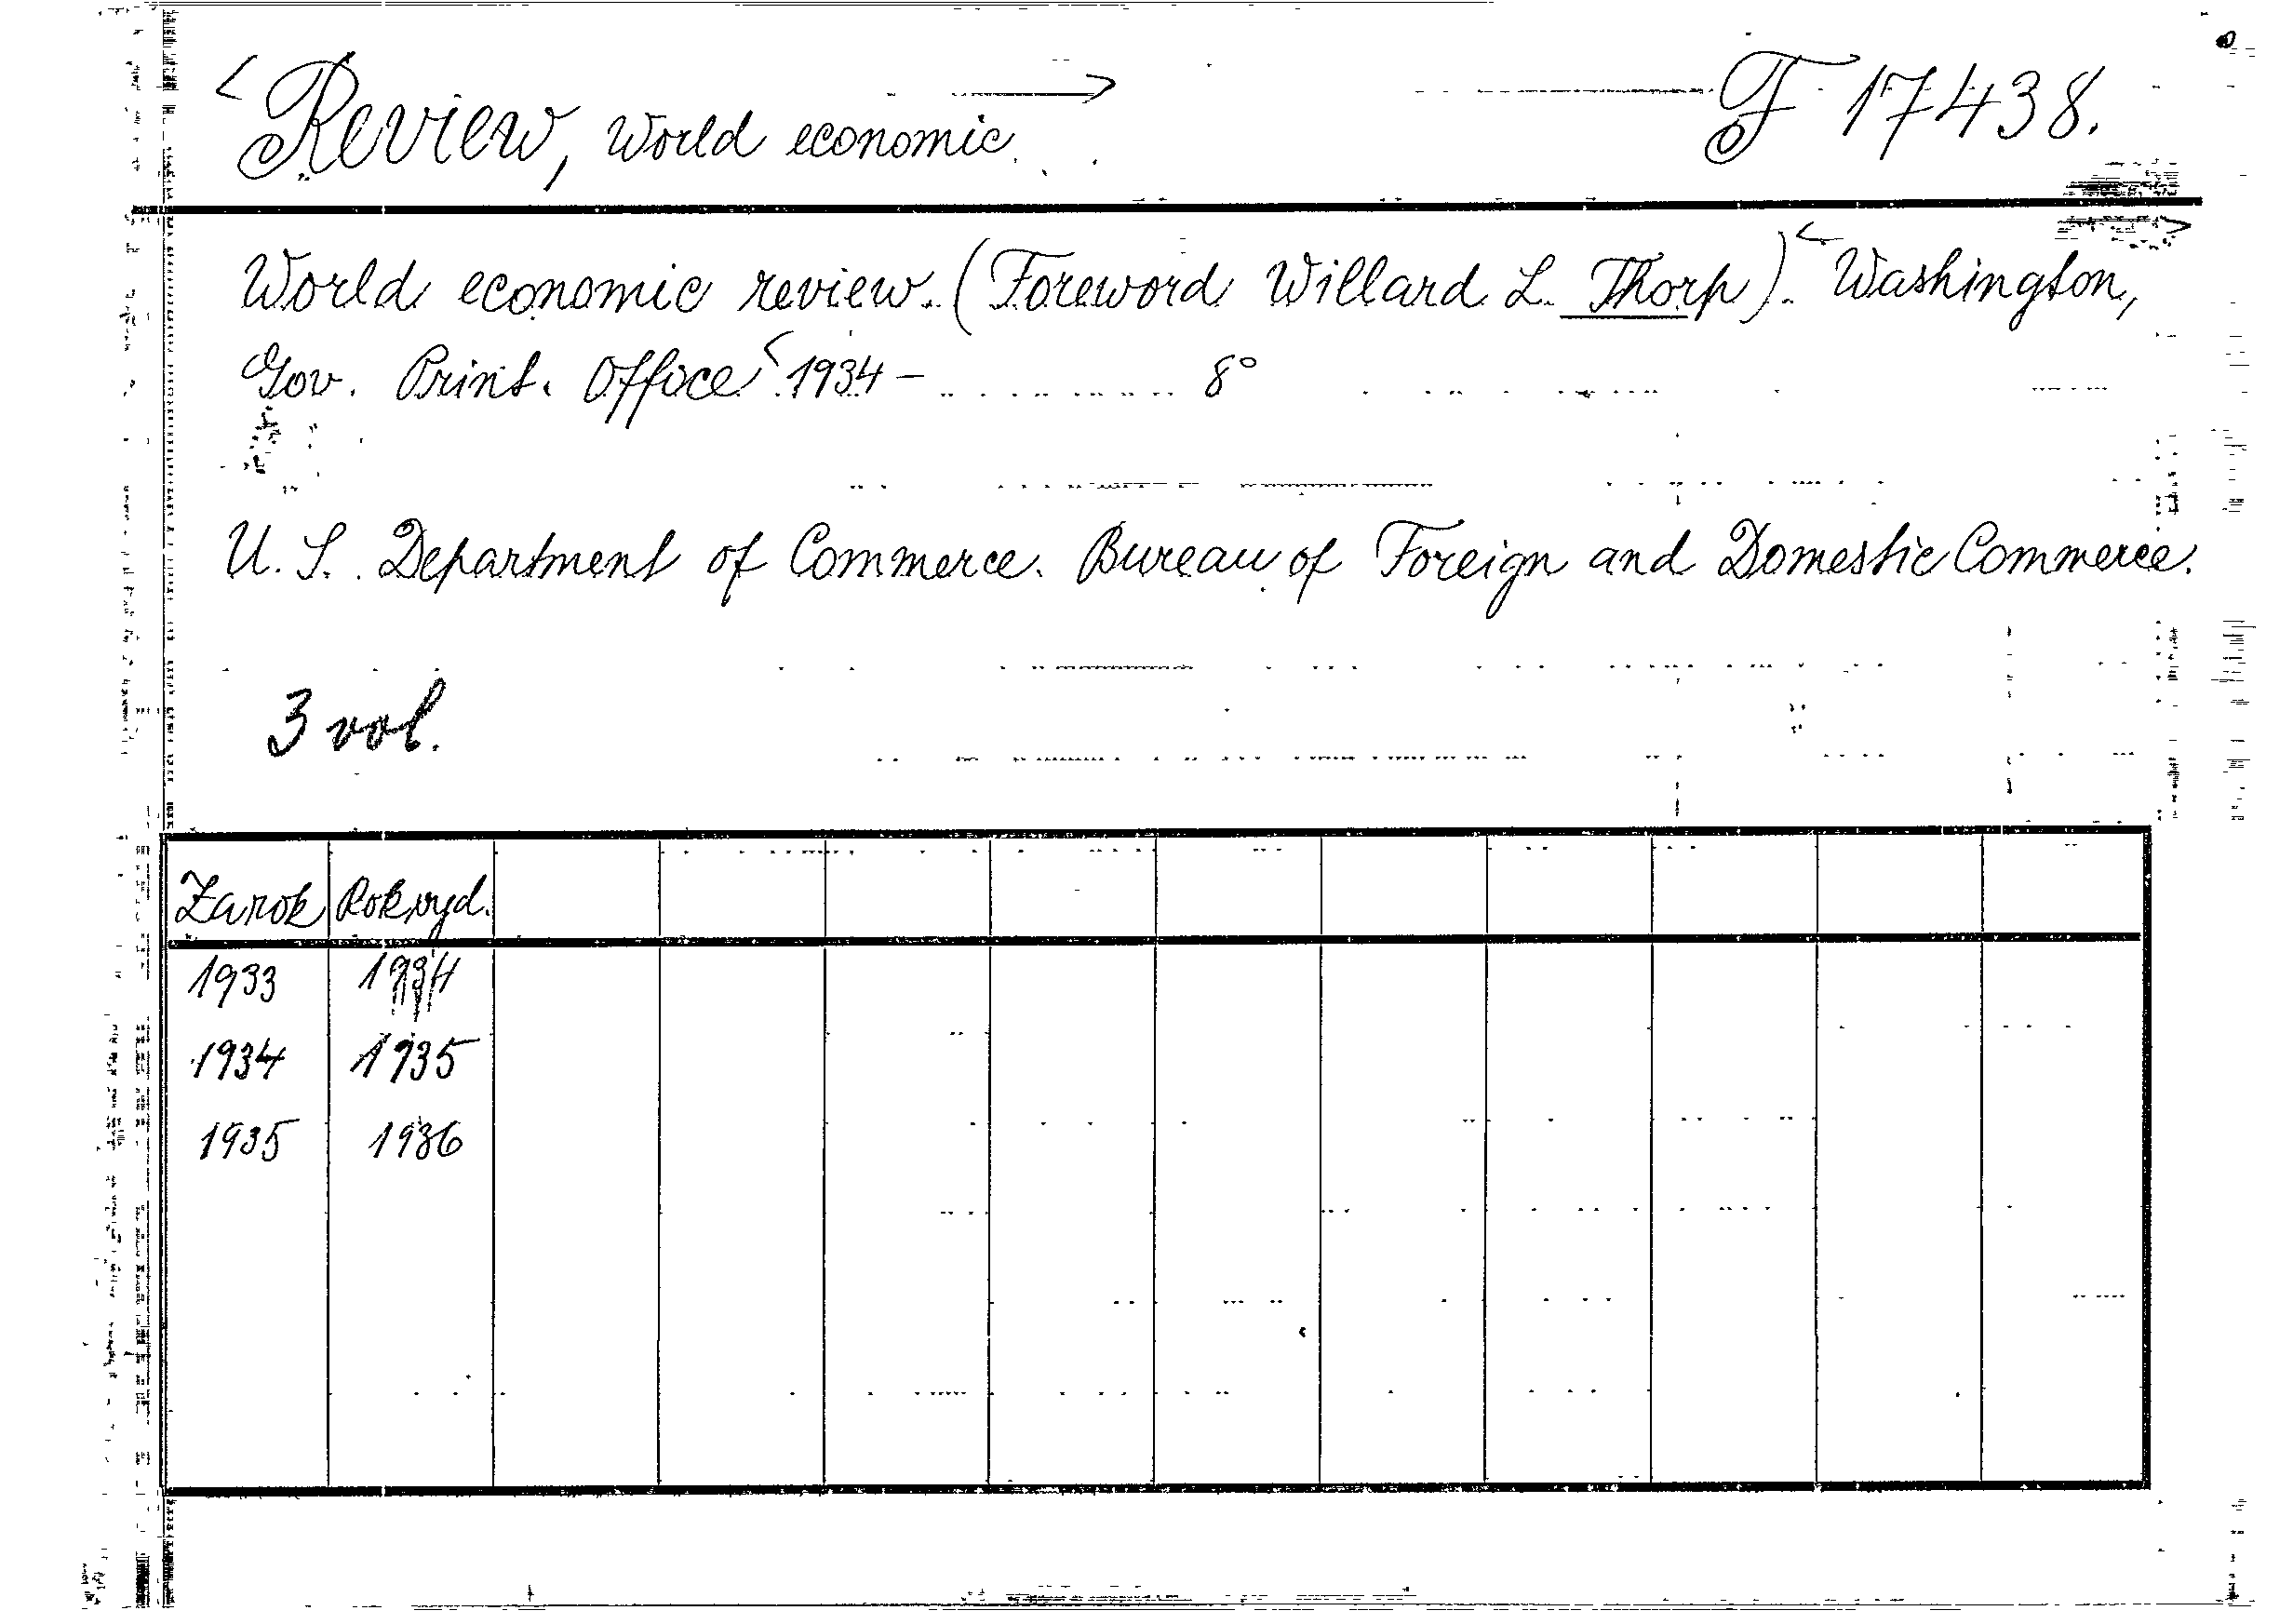 <Review, World economic.> F 17438.
World economic review. (Foreword Willard L. Thorp). <Washington,>
Gov. Print. Office <1934 – 8°
U. S. Department of Commerce. Bureau of Foreign and Domestic Commerce.
3 vol.
Zarok Rok vyd.
1933 1934
1934 1935
1935 1936